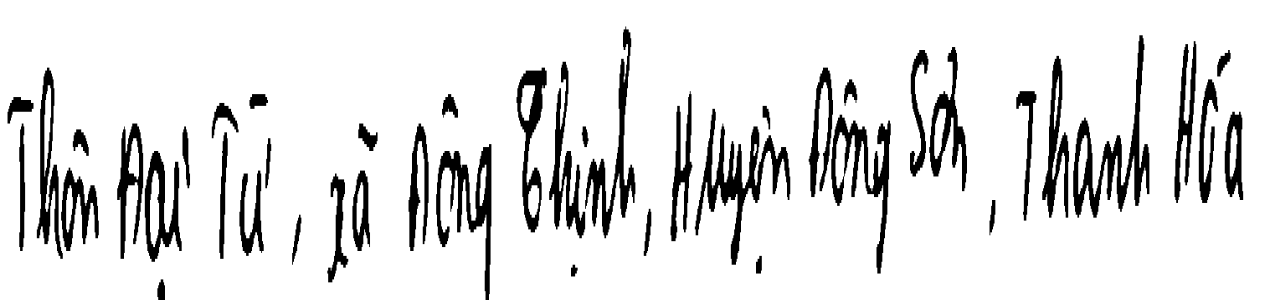 Thôn Đại Từ, xã Đông Thịnh, Huyện Đông Sơn, Thanh Hóa